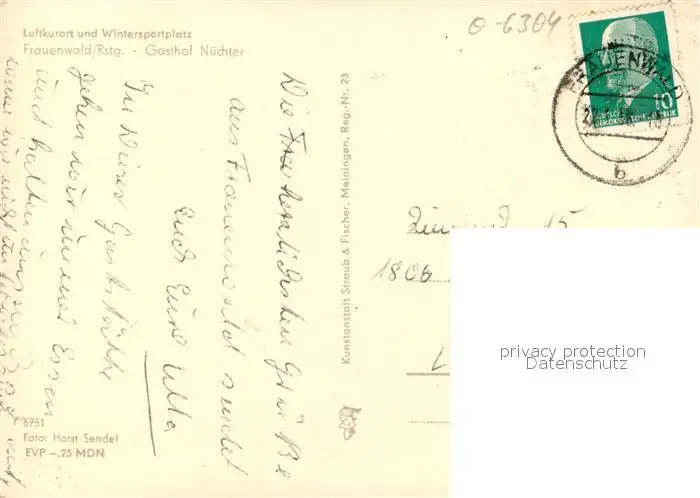 Luftkurort und Wintersportplatz
Frauenwald/Rstg. - Gasthof Nüchter
o-6304
FRAUENWALD
10
DEUTSCHE
DEMOKRATISCHE REPUBLIK
b
Die herzlichsten Grüße
aus Frauenwald sendet
Euch Eure Ulla
In dieser Gaststätte
gehen wir immer Essen
und halten
Kunstanstalt Straub & Fischer, Meiningen, Reg.-Nr. 23
15
1806
6751
Foto: Horst Sendel
EVP -,25 MDN
privacy protection
Datenschutz